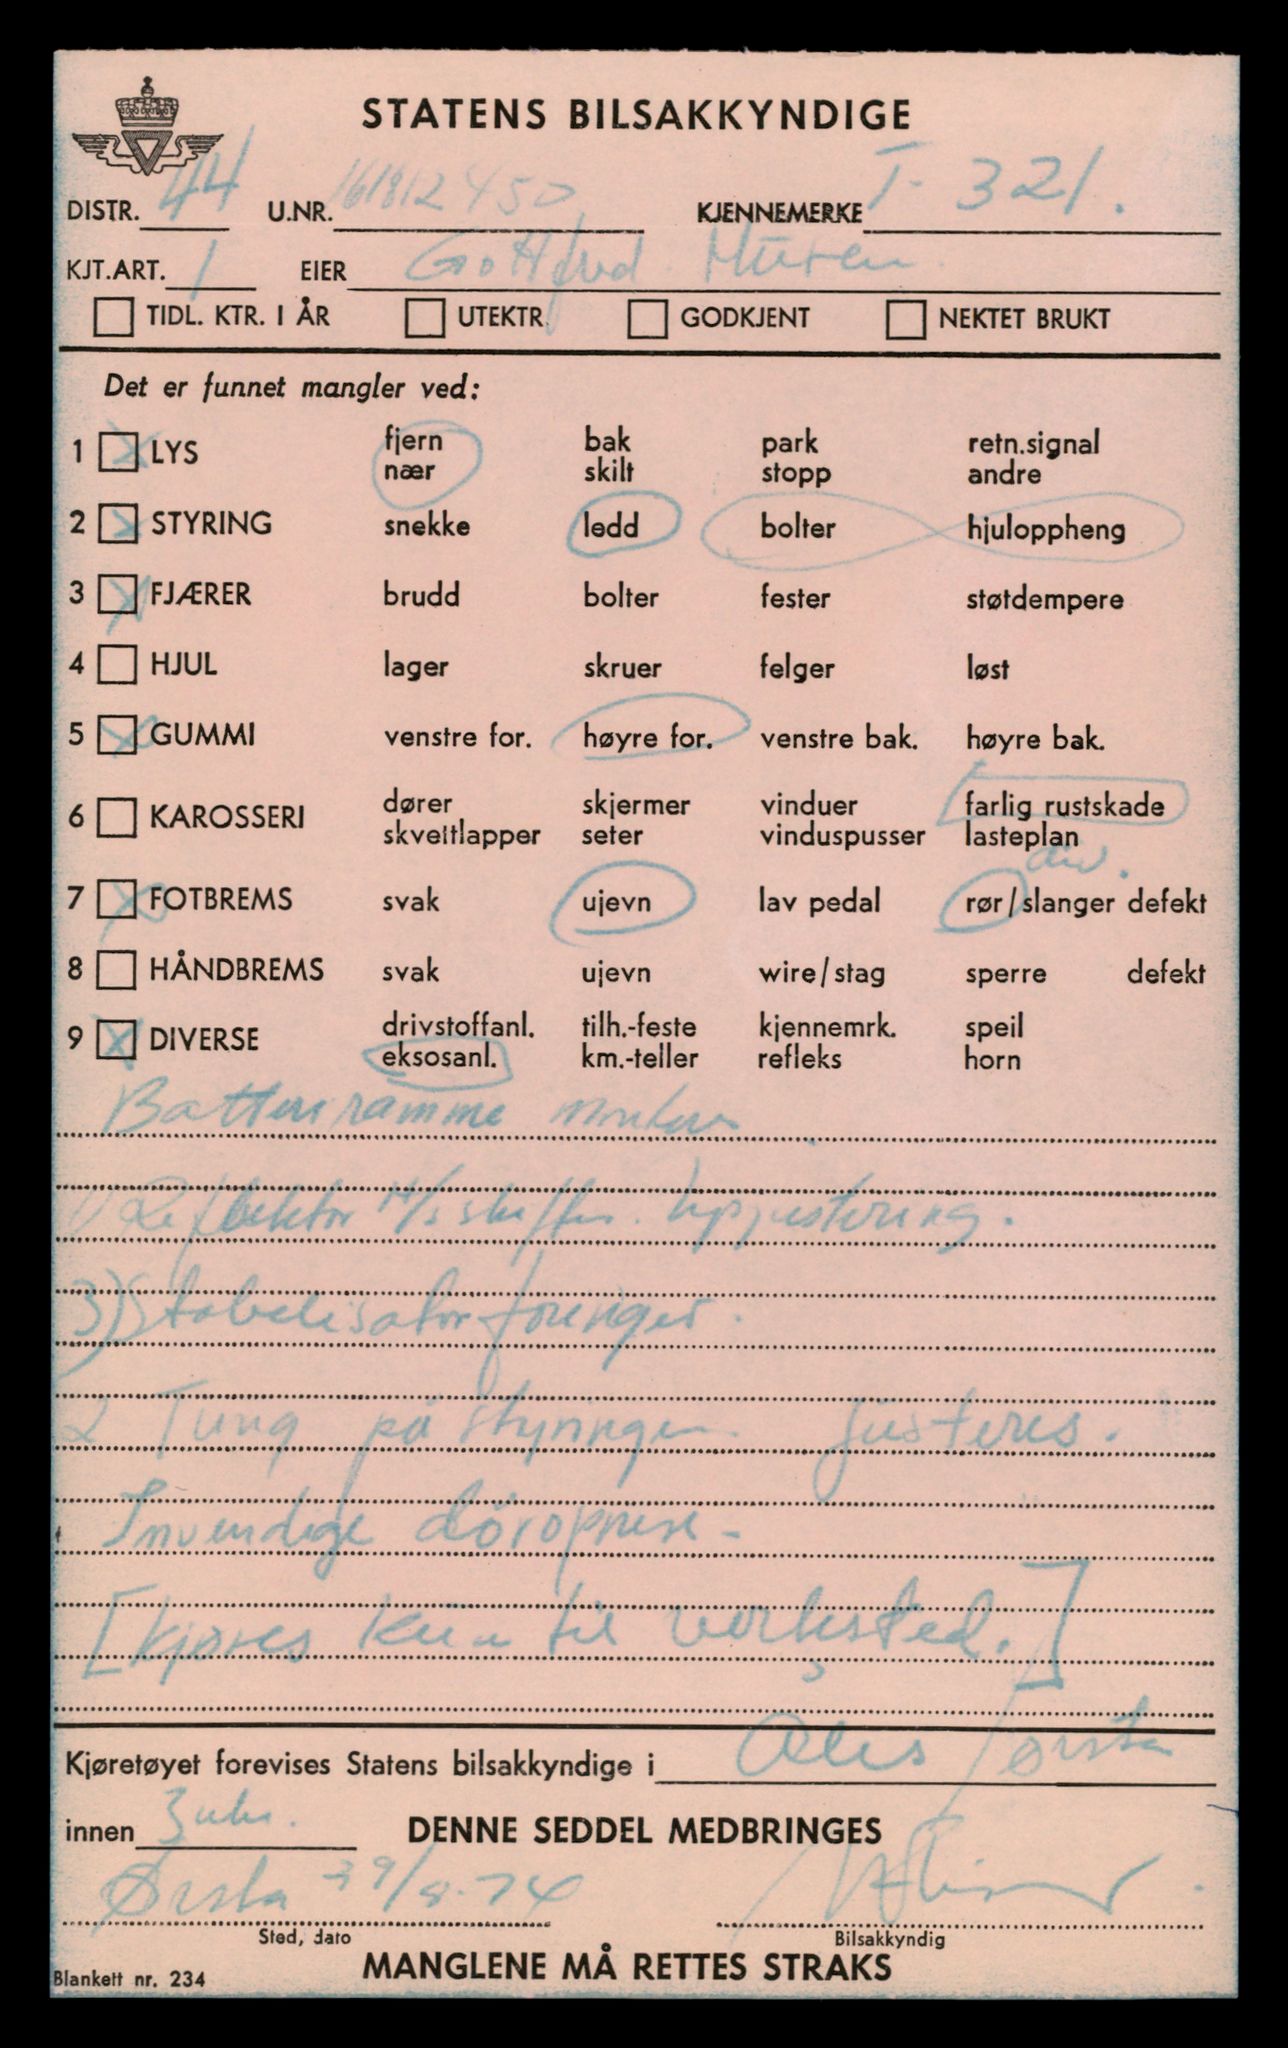 STATENS BILSAKKYNDIGE
DISTR. 44 U.NR. 161812450 KJENNEMERKE T- 321.
KJT.ART. 1 EIER Gottfred
TIDL. KTR. I ÅR UTEKTR. GODKJENT NEKTET BRUKT
Det er funnet mangler ved:
1 LYS fjern bak park retn.signal
nær skilt stopp andre
2 STYRING snekke ledd bolter hjuloppheng
3 FJÆRER brudd bolter fester støtdempere
4 HJUL lager skruer felger løst
5 GUMMI venstre for. høyre for. venstre bak. høyre bak.
6 KAROSSERI dører skjermer vinduer farlig rustskade
skvettlapper seter vinduspusser lasteplan
div.
7 FOTBREMS svak ujevn lav pedal rør/slanger defekt
8 HÅNDBREMS svak ujevn wire/stag sperre defekt
9 DIVERSE drivstoffanl. tilh.-feste kjennemrk. speil
eksosanl. km.-teller refleks horn
Batteriramme
1) Reflektor H/s skiftes.
3) Stabelisatorforinger.
2 Tung på styringen justeres.
Invendige døropnere -
[kjøres kun til verksted.]
Kjøretøyet forevises Statens bilsakkyndige i Ørsta
innen 3 uker. DENNE SEDDEL MEDBRINGES
Ørsta 29/8-74
Sted, dato Bilsakkyndig
MANGLENE MÅ RETTES STRAKS
Blankett nr. 234